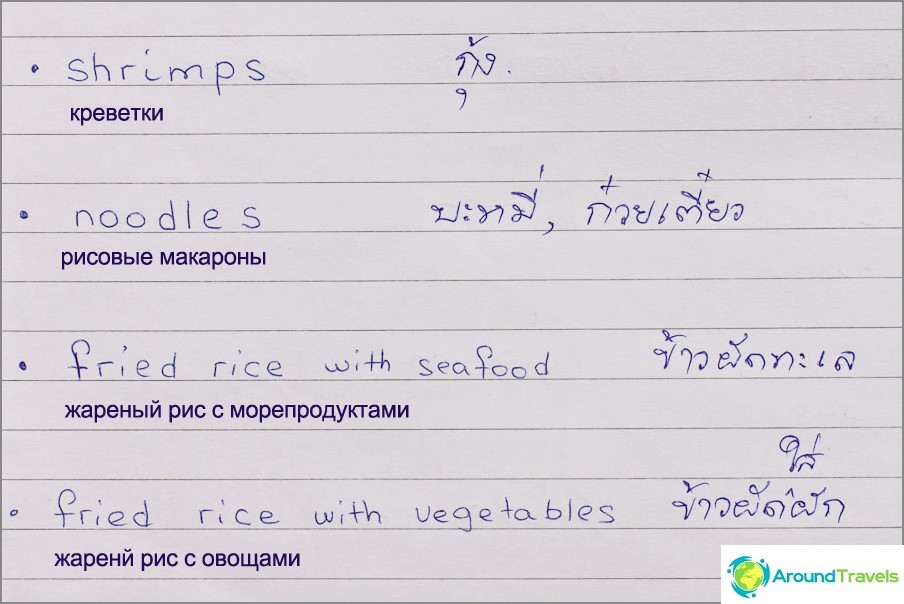 • shrimps กุ้ง.
креветки
• noodles บะหมี่, ก๋วยเตี๋ยว
рисовые макароны
• fried rice with seafood ข้าวผัดทะเล
жареный рис с морепродуктами
ใส่
• fried rice with vegetables ข้าวผัดผัก
жаренй рис с овощами
AroundTravels